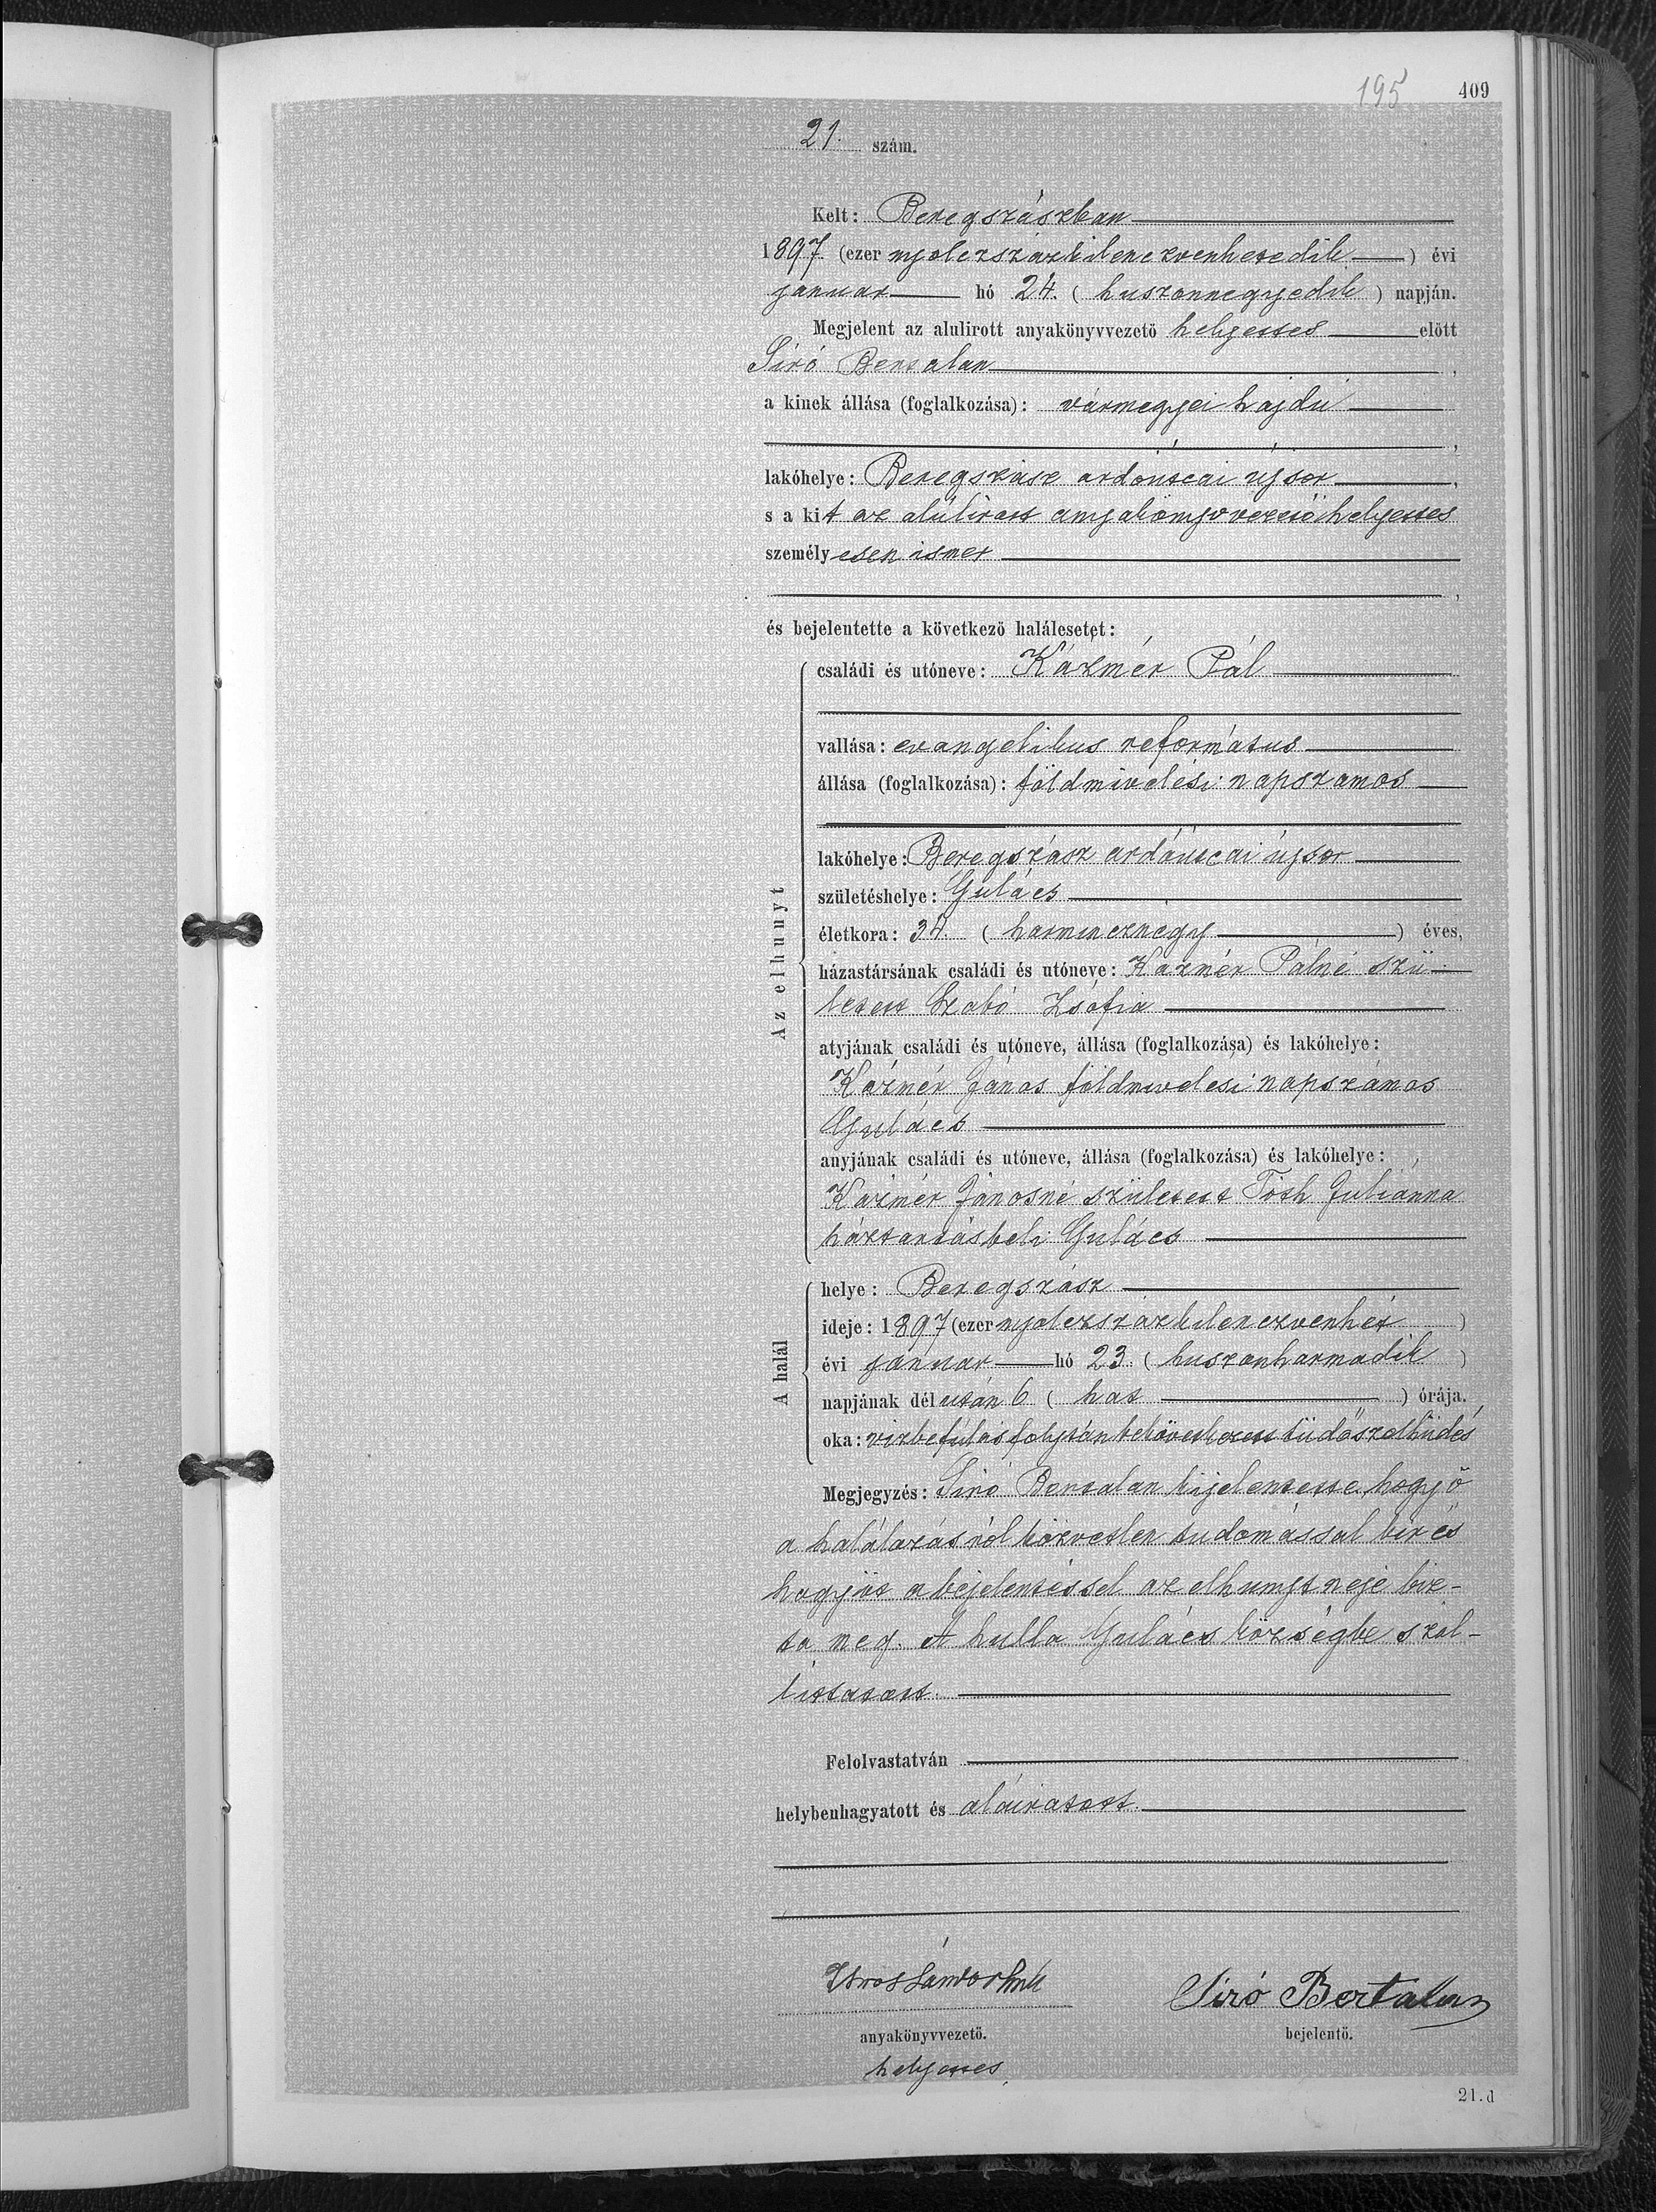 195 409
21. szám.
Kelt: Beregszászban
1897. (ezer nyolczszázkilenczvenhetedik) évi
január hó 24. (huszonnegyedik) napján.
Megjelent az alulirott anyakönyvvezető helyettes előtt
Siró Bertalan,
a kinek állása (foglalkozása): vármegyei hajdú
,
lakóhelye: Beregszász ardóutcai újsor,
s a kit az alulirott anyakönyvvezető helyettes
személyesen ismer
,
és bejelentette a következő halálesetet:
Az elhunyt
családi és utóneve: Kázmér Pál
vallása: evangelikus református
állása (foglalkozása): földmivelési napszámos
lakóhelye: Beregszász ardóutcai újsor
születéshelye: Gulács
életkora: 34. (harmincznégy) éves,
házastársának családi és utóneve: Kázmér Pálné szü-
letett Szabó Zsófia
atyjának családi és utóneve, állása (foglalkozása) és lakóhelye:
Kázmér János földmivelési napszámos
Gulács
anyjának családi és utóneve, állása (foglalkozása) és lakóhelye:
Kázmér Jánosné született Tóth Juliánna
háztartásbeli Gulács
A halál
helye: Beregszász
ideje: 1897 (ezer nyolczszázkilenczvenhét)
évi január hó 23. (huszonharmadik)
napjának délután 6 (hat) órája.
oka: vizbefúlás folytán bekövetkezett tüdőszélhüdés
Megjegyzés: Siró Bertalan kijelentette hogy ő
a halálozásról közvetlen tudomással bir és
hogy őt a bejelentéssel az elhunyt neje biz-
ta meg. A hulla Gulács községbe szál-
líttatott.
Felolvastatván
helybenhagyatott és aláiratott.
Siró Bertalan
anyakönyvvezető. bejelentő.
helyettes
21.d